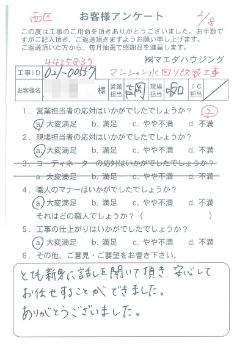 西区
お客様アンケート
2/8
この度は工事のご用命を頂きありがとうございました。お手数で
すがご記入頂き、ご返送頂きますようお願い申し上げます。
ご返送頂いた方から、毎月抽選で感謝品を進呈します。
4425839
㈱マエダハウジング
工事ID
021-00557
マンション水回り改装工事
お客様名
様
営業担当
現場担当
IC担当
1. 営業担当者の応対はいかがでしたでしょうか?
a. 大変満足 b. 満足 c. やや不満 d. 不満
2. 現場担当者の応対はいかがでしたでしょうか?
a. 大変満足 b. 満足 c. やや不満 d. 不満
3. コーディネーターの応対はいかがでしたでしょうか?
a. 大変満足 b. 満足 c. やや不満 d. 不満
4. 職人のマナーはいかがでしたでしょうか?
a. 大変満足 b. 満足 c. やや不満 d. 不満
それはどの職人でしょうか?( )
5. 工事の仕上がりはいかがでしたでしょうか?
a. 大変満足 b. 満足 c. やや不満 d. 不満
6. その他、ご意見・ご要望をお書き下さい。
とても親身に話しを聞いて頂き 安心して
お任せすることができました。
ありがとうございました。